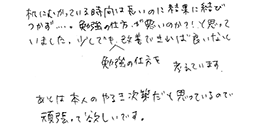 机にむかっている時間は長いのに結果に結び
つかず....。勉強の仕方が悪いのか?!と思って
いました。少しでも改善できれば良いなと
勉強の仕方を 考えています。
あとは本人のやる気次第だと思っているので
頑張って欲しいです。